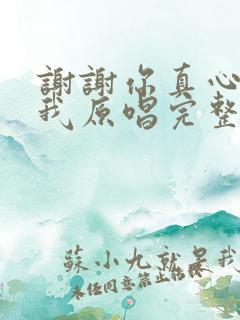 謝謝你真心
我原唱完整
蘇小九就是我
未任同意禁止轉載